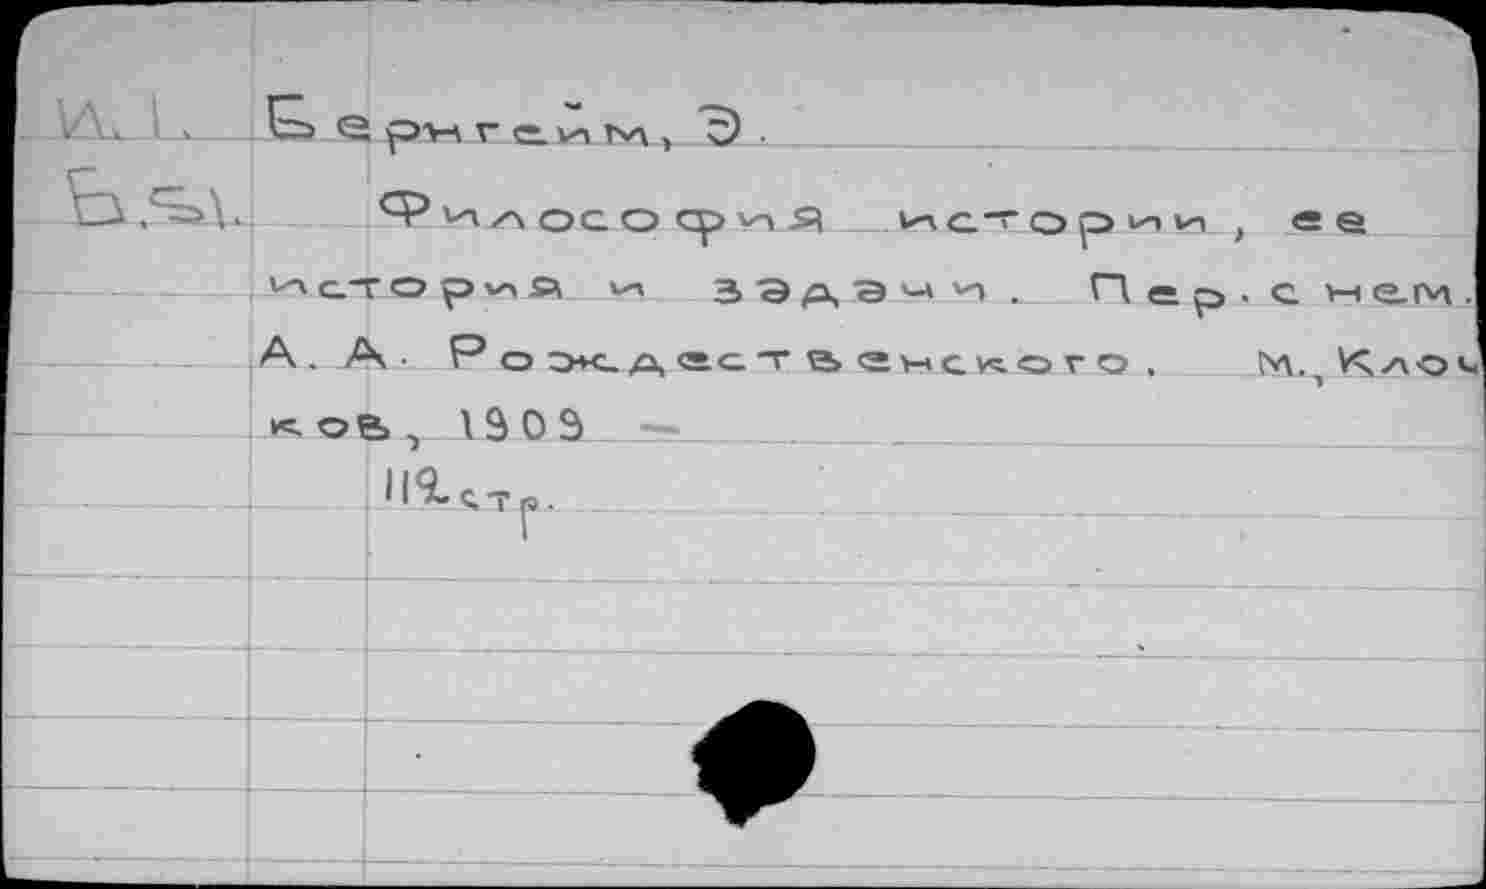 И. 1. Бернгейм, Э.
Б.51. Философия истории, ее
история и задачи. Пер. с нем.
А. А. Рождественского. М., Клоч
ков, 1909 –
112 стр.